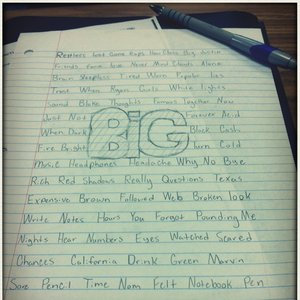 Restless Lost Game Raps How Class Big Justin
Friends Fame Love Never Mind Clouds Alone
Brain Sleepless Tired Worn Popular Lies
Trust When Again Girls White Lights
Sound Blake Thoughts Famous Together Now
Just Not Forever Acid
BIG
When Dark Black Cash
Fire Bright Turn Cold
Music Headphones Headache Why No Blue
Rich Red Shadows Really Questions Texas
Expansive Brown Followed Web Broken look
Write Notes Hours You Forgot Pounding Me
Nights Hear Numbers Eyes Watched Scared
Chances California Drink Green Marvin
Sore Pencil Time Nom Felt Notebook Pen